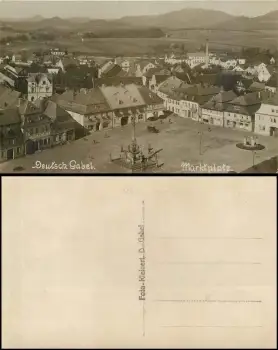 Deutsch Gabel.
Marktplatz
Foto-Kleinert, D.-Gabel